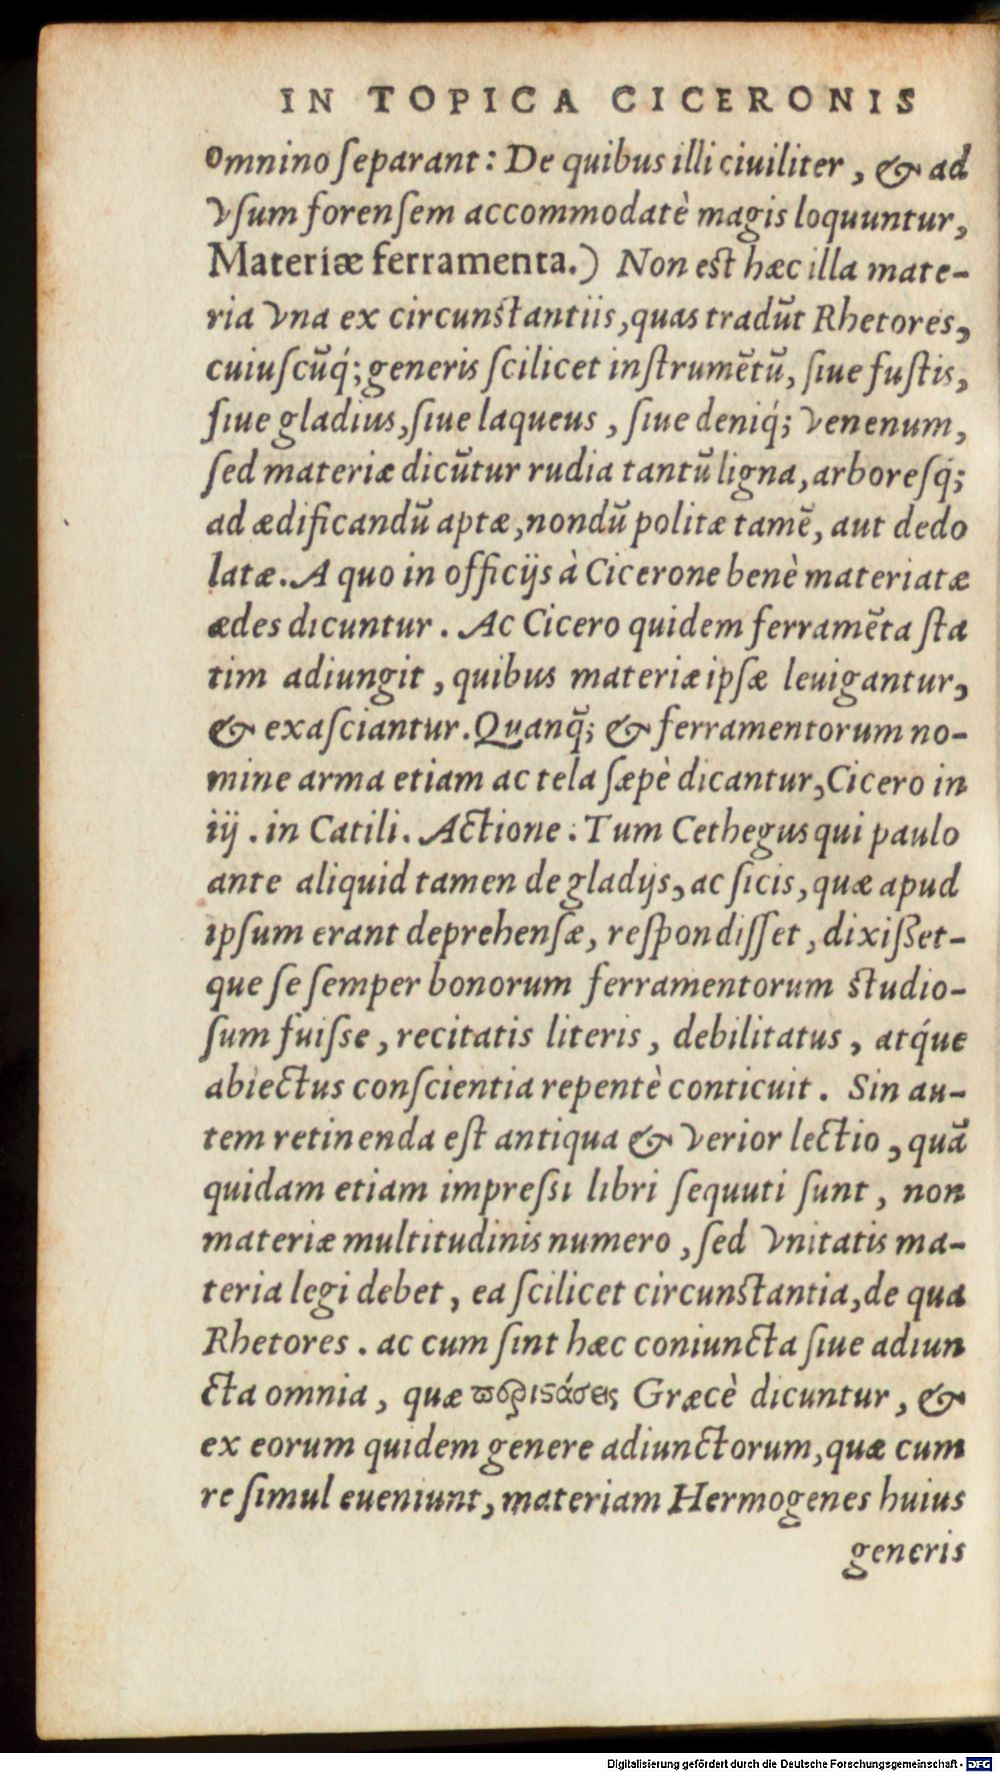 IN TOPICA CICERONIS
omnino ſeparant: De quibus illi ciuiliter, & ad
vſum forenſem accommodatè magis loquuntur,
Materiæ ferramenta.) Non est hæc illa mate-
ria vna ex circunstantiis, quas tradūt Rhetores,
cuiuſcūq́; generis ſcilicet inſtrumētū, ſiue fuſtis,
ſiue gladius, ſiue laqueus, ſiue deniq́; venenum,
ſed materiæ dicūtur rudia tantū ligna, arboreſq́;
ad ædificandū aptæ, nondū politæ tamē, aut dedo
latæ. A quo in officijs à Cicerone benè materiatæ
ædes dicuntur. Ac Cicero quidem ferramēta ſta
tim adiungit, quibus materiæ ipſæ leuigantur,
& exaſciantur. Quanq̃; & ferramentorum no-
mine arma etiam ac tela ſæpè dicantur, Cicero in
iij. in Catili. Actione: Tum Cethegus qui paulo
ante aliquid tamen de gladijs, ac ſicis, quæ apud
ipſum erant deprehenſæ, reſpondiſſet, dixiſſet-
que ſe ſemper bonorum ferramentorum studio-
ſum fuiſse, recitatis literis, debilitatus, atq́ue
abiectus conſcientia repentè conticuit. Sin au-
tem retinenda eſt antiqua & verior lectio, quā
quidam etiam impreſsi libri ſequuti ſunt, non
materiæ multitudinis numero, ſed vnitatis ma-
teria legi debet, ea ſcilicet circunstantia, de qua
Rhetores. ac cum ſint hæc coniuncta ſiue adiun
cta omnia, quæ περιστάσεις Græcè dicuntur, &
ex eorum quidem genere adiunctorum, quæ cum
re ſimul eueniunt, materiam Hermogenes huius
generis
Digitalisierung gefördert durch die Deutsche Forschungsgemeinschaft - DFG